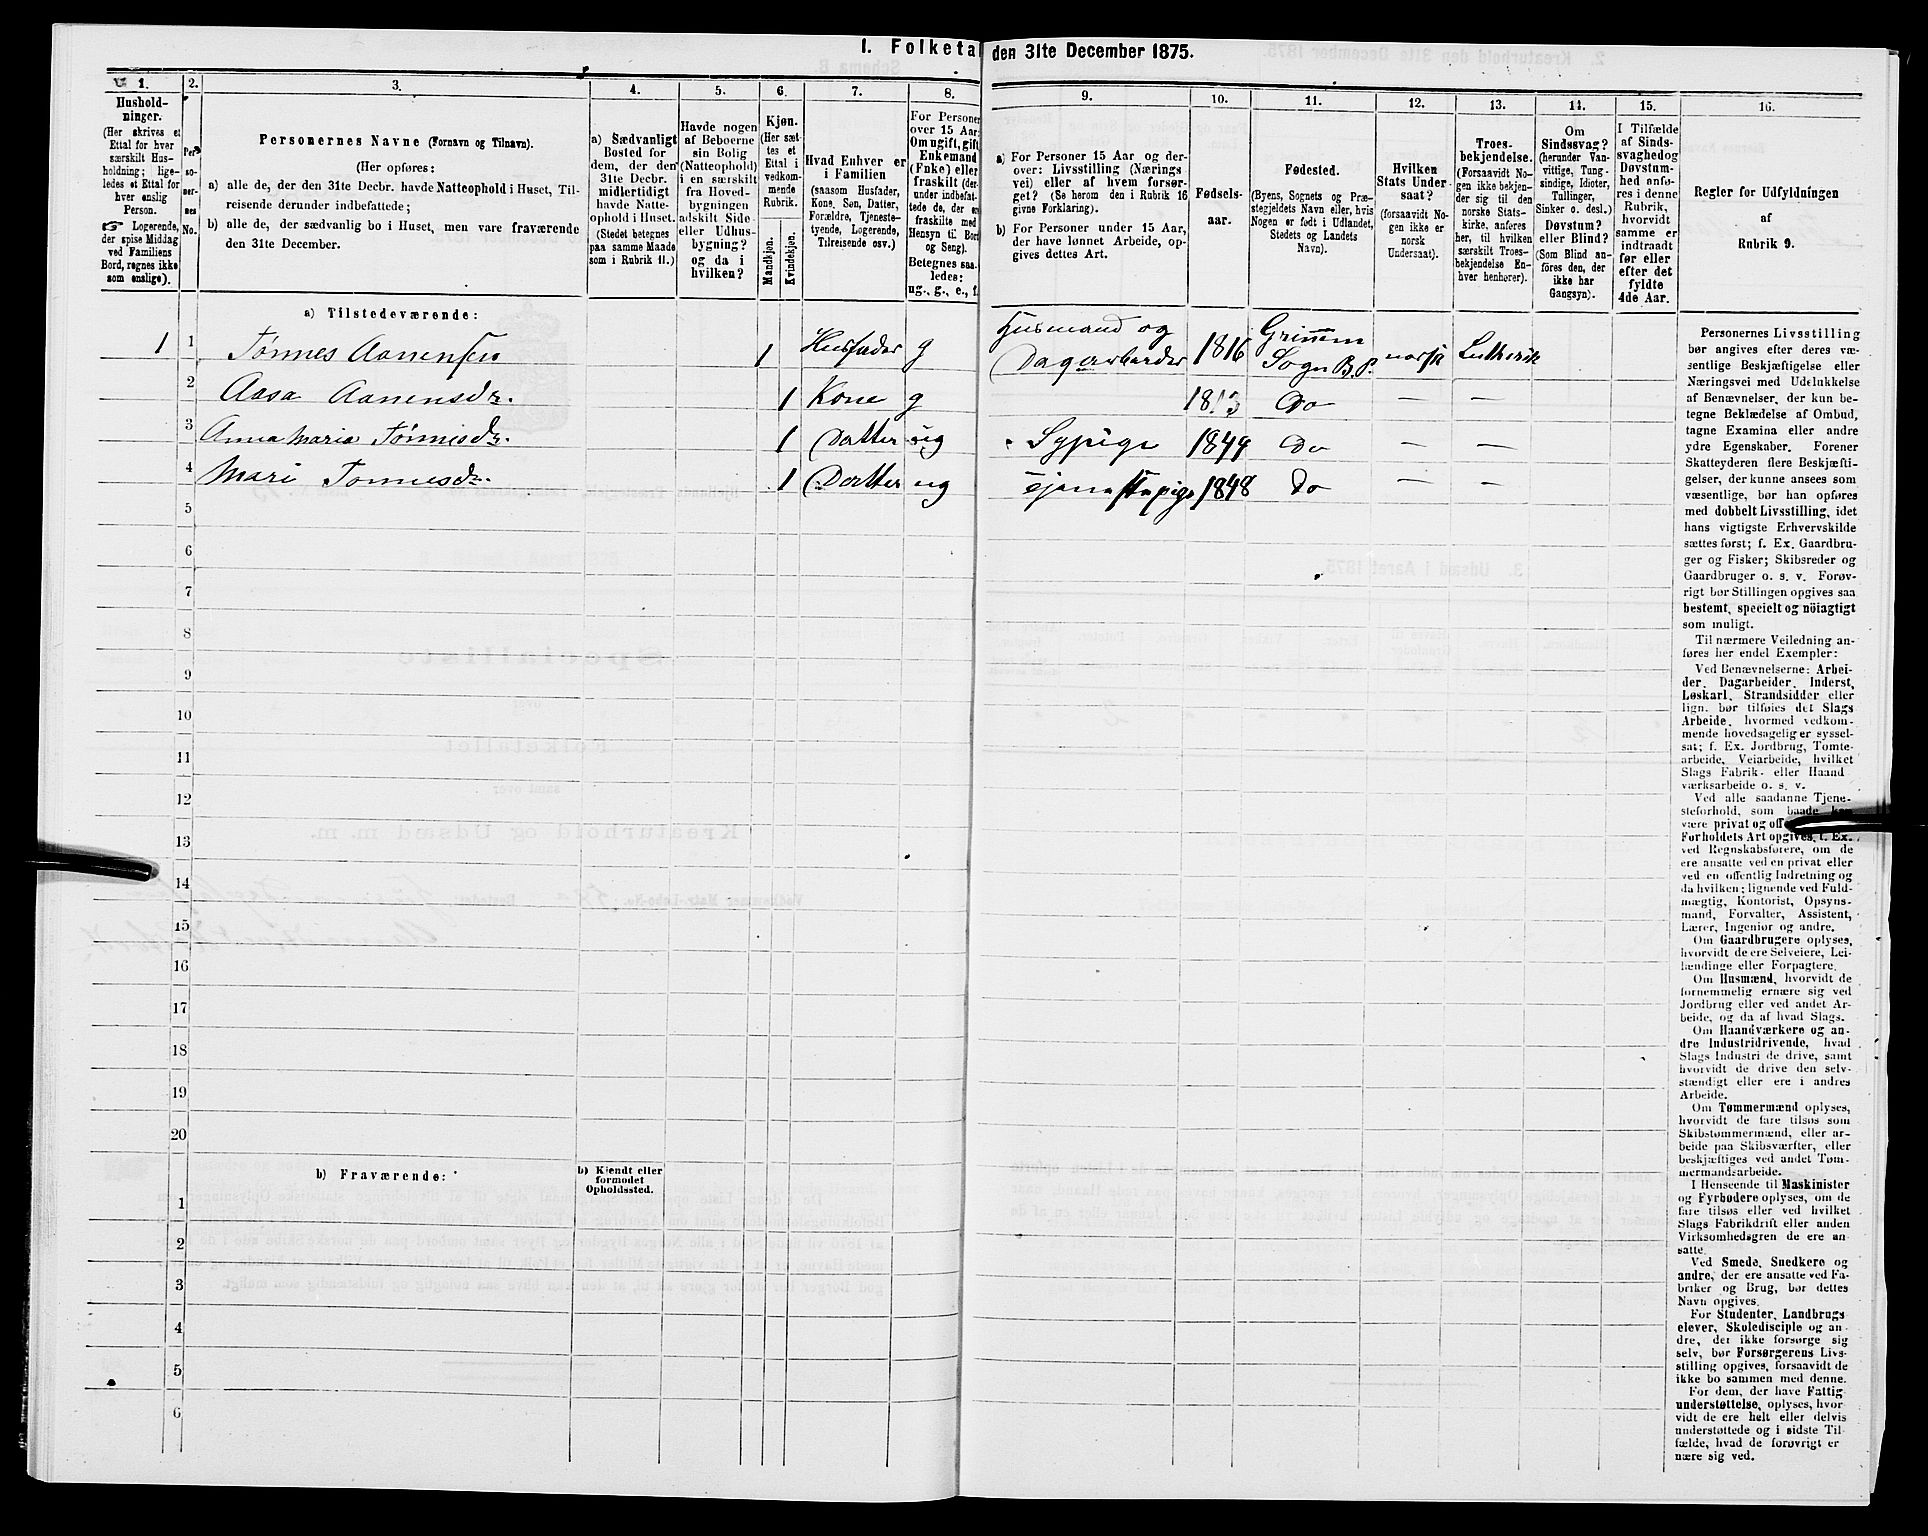 I. Folketal den 31te December 1875.
1.
2.
3.
4.
5.
6.
7.
8.
9.
10.
11.
12.
13.
14.
15.
16.
Hushold-
ninger.
(Her skrives et
Ettal for hver
særskilt Hus-
holdning; lige-
ledes et Ettal for
hver enslig
Person.
☞ Logerende,
der spise Middag
ved Familiens
Bord, regnes ikke
som enslige).
Per-
so-
ner-
nes
No.
Personernes Navne (Fornavn og Tilnavn).
(Her opføres:
a) alle de, der den 31te Decbr. havde Natteophold i Huset, Til-
reisende derunder indbefattede;
b) alle de, der sædvanlig bo i Huset, men vare fraværende
den 31te December.
a) Sædvanligt
Bosted for
dem, der den
31te Decbr.
midlertidigt
havde Natte-
ophold i Huset.
(Stedet betegnes
paa samme Maade
som i Rubrik 11.)
Havde nogen
af Beboerne
sin Bolig
(Natteophold)
i en særskilt
fra Hoved-
bygningen
adskilt Side-
eller Udhus-
bygning?
og da i
hvilken?
Kjøn.
(Her sæt-
tes et
Ettal i
vedkom-
mende
Rubrik.
Mandkjøn.
Kvindekjøn.
Hvad Enhver er
i Familien
(saasom Husfader,
Kone, Søn, Datter,
Forældre, Tjeneste-
tyende, Logerende,
Tilreisende osv.)
For Personer
over 15 Aar:
Om ugift, gift,
Enkemand
(Enke) eller
fraskilt (der-
under indbefat-
tede de, der ere
fraskilte med
Hensyn til Bord
og Seng).
Betegnes saa-
ledes:
ug., g., e., f.
a) For Personer 15 Aar og der-
over: Livsstilling (Nærings-
vei) eller af hvem forsør-
get? (Se herom den i Rubrik 16
givne Forklaring).
b) For Personer under 15 Aar,
der have lønnet Arbeide, op-
gives dettes Art.
Fødsels-
aar.
Fødested.
(Byens, Sognets og Præ-
stegjeldets Navn eller, hvis
Nogen er født i Udlandet,
Stedets og Landets
Navn).
Hvilken
Stats Under-
saat?
(forsaavidt No-
gen ikke er
norsk
Undersaat).
Troes-
bekjendelse.
(Forsaavidt No-
gen ikke bekjen-
der sig til den
norske Stats-
kirke, anføres
her, til hvilken
særskilt Troes-
bekjendelse En-
hver henhører).
Om
Sindssvag?
(herunder Van-
vittige, Tung-
sindige, Idioter,
Tullinger,
Sinker o. desl.)
Døvstum?
eller Blind?
(Som Blind an-
føres den, der
ikke har
Gangsyn).
I Tilfælde
af Sinds-
svaghed og
Døvstum-
hed anfø-
res i denne
Rubrik,
hvorvidt
samme er
indtraadt
før eller
efter det
fyldte
4de Aar.
Regler for Udfyldningen
af
Rubrik 9.
a) Tilstedeværende:
1 1 Tønnes Aanensen 1 Husfader g Husmand og Dagarbeider 1816 Grimem Sogn B.P. norsk Luthersk
2 Aasa Aanensdr. 1 Kone g 1813 Do — —
3 Anna Maria Tønnisdr. 1 Datter ug Sypige 1849 Do — —
4 Mari Tønnesdr. 1 Datter ug Tjenestepige 1848 Do — —
5
6
7
8
9
10
11
12
13
14
15
16
17
18
19
20
b) Fraværende:
b) Kjendt eller
formodet
Opholdssted.
1
2
3
4
5
6
Personernes Livsstilling
bør angives efter deres væ-
sentlige Beskjæftigelse eller
Næringsvei med Udelukkelse
af Benævnelser, der kun be-
tegne Beklædelse af Ombud,
tagne Examina eller andre
ydre Egenskaber. Forener
Skatteyderen flere Beskjæfti-
gelser, der kunne ansees som
væsentlige, bør han opføres
med dobbelt Livsstilling, idet
hans vigtigste Erhvervskilde
sættes først; f. Ex. Gaardbru-
ger og Fisker; Skibsreder og
Gaardbruger o. s. v. Forøv-
rigt bør Stillingen opgives saa
bestemt, specielt og nöiagtigt
som muligt.
Til nærmere Veiledning an-
føres her endel Exempler:
Ved Benævnelserne: Arbei-
der, Dagarbeider, Inderst,
Løskarl, Strandsidder eller
lign. bør tilføies det Slags
Arbeide, hvormed vedkom-
mende hovedsagelig er syssel-
sat; f. Ex. Jordbrug, Tomte-
arbeide, Veiarbeide, hvilket
Slags Fabrik- eller Haand-
værksarbeide o. s. v.
Ved alle saadanne Tjene-
steforhold, som baade kan
være privat og off
Forholdets Art opgives, f. Ex.
ved Regnskabsførere, om de
ere ansatte ved en privat eller
ved en offentlig Indretning og
da hvilken; lignende ved Fuld-
mægtig, Kontorist, Opsyns-
mand, Forvalter, Assistent,
Lærer, Ingeniør og andre.
Om Gaardbrugere oplyses,
hvorvidt de ere Selveiere, Lei-
lændinge eller Forpagtere.
Om Husmænd, hvorvidt de
fornemmelig ernære sig ved
Jordbrug eller ved andet Ar-
beide, og da af hvad Slags.
Om Haandværkere og an-
dre Industridrivende, hvad
Slags Industri de drive, samt
hvorvidt de drive den selv-
stændigt eller ere i andres
Arbeide.
Om Tømmermænd oplyses,
hvorvidt de fare tilsøs som
Skibstømmermænd, eller ar-
beide paa Skibsværfter, eller
beskjæftiges ved andet Tøm-
mermandsarbeide.
I Henseende til Maskinister
og Fyrbødere oplyses, om de
fare tilsøs eller ved hvilket
Slags Fabrikdrift eller anden
Virksomhedsgren de ere an-
satte.
Ved Smede, Snedkere og
andre, der ere ansatte ved Fa-
briker og Brug, bør dettes
Navn opgives.
For Studenter, Landbrugs-
elever, Skoledisciple og an-
dre, der ikke forsørge sig
selv, bør Forsørgerens Livs-
stilling opgives, forsaavidt de
ikke bo sammen med denne.
For dem, der have Fattig-
understøttelse, oplyses, hvor-
vidt de ere helt eller delvis
understøttede og i sidste Til-
fælde, hvad de forøvrigt er-
nære sig ved.